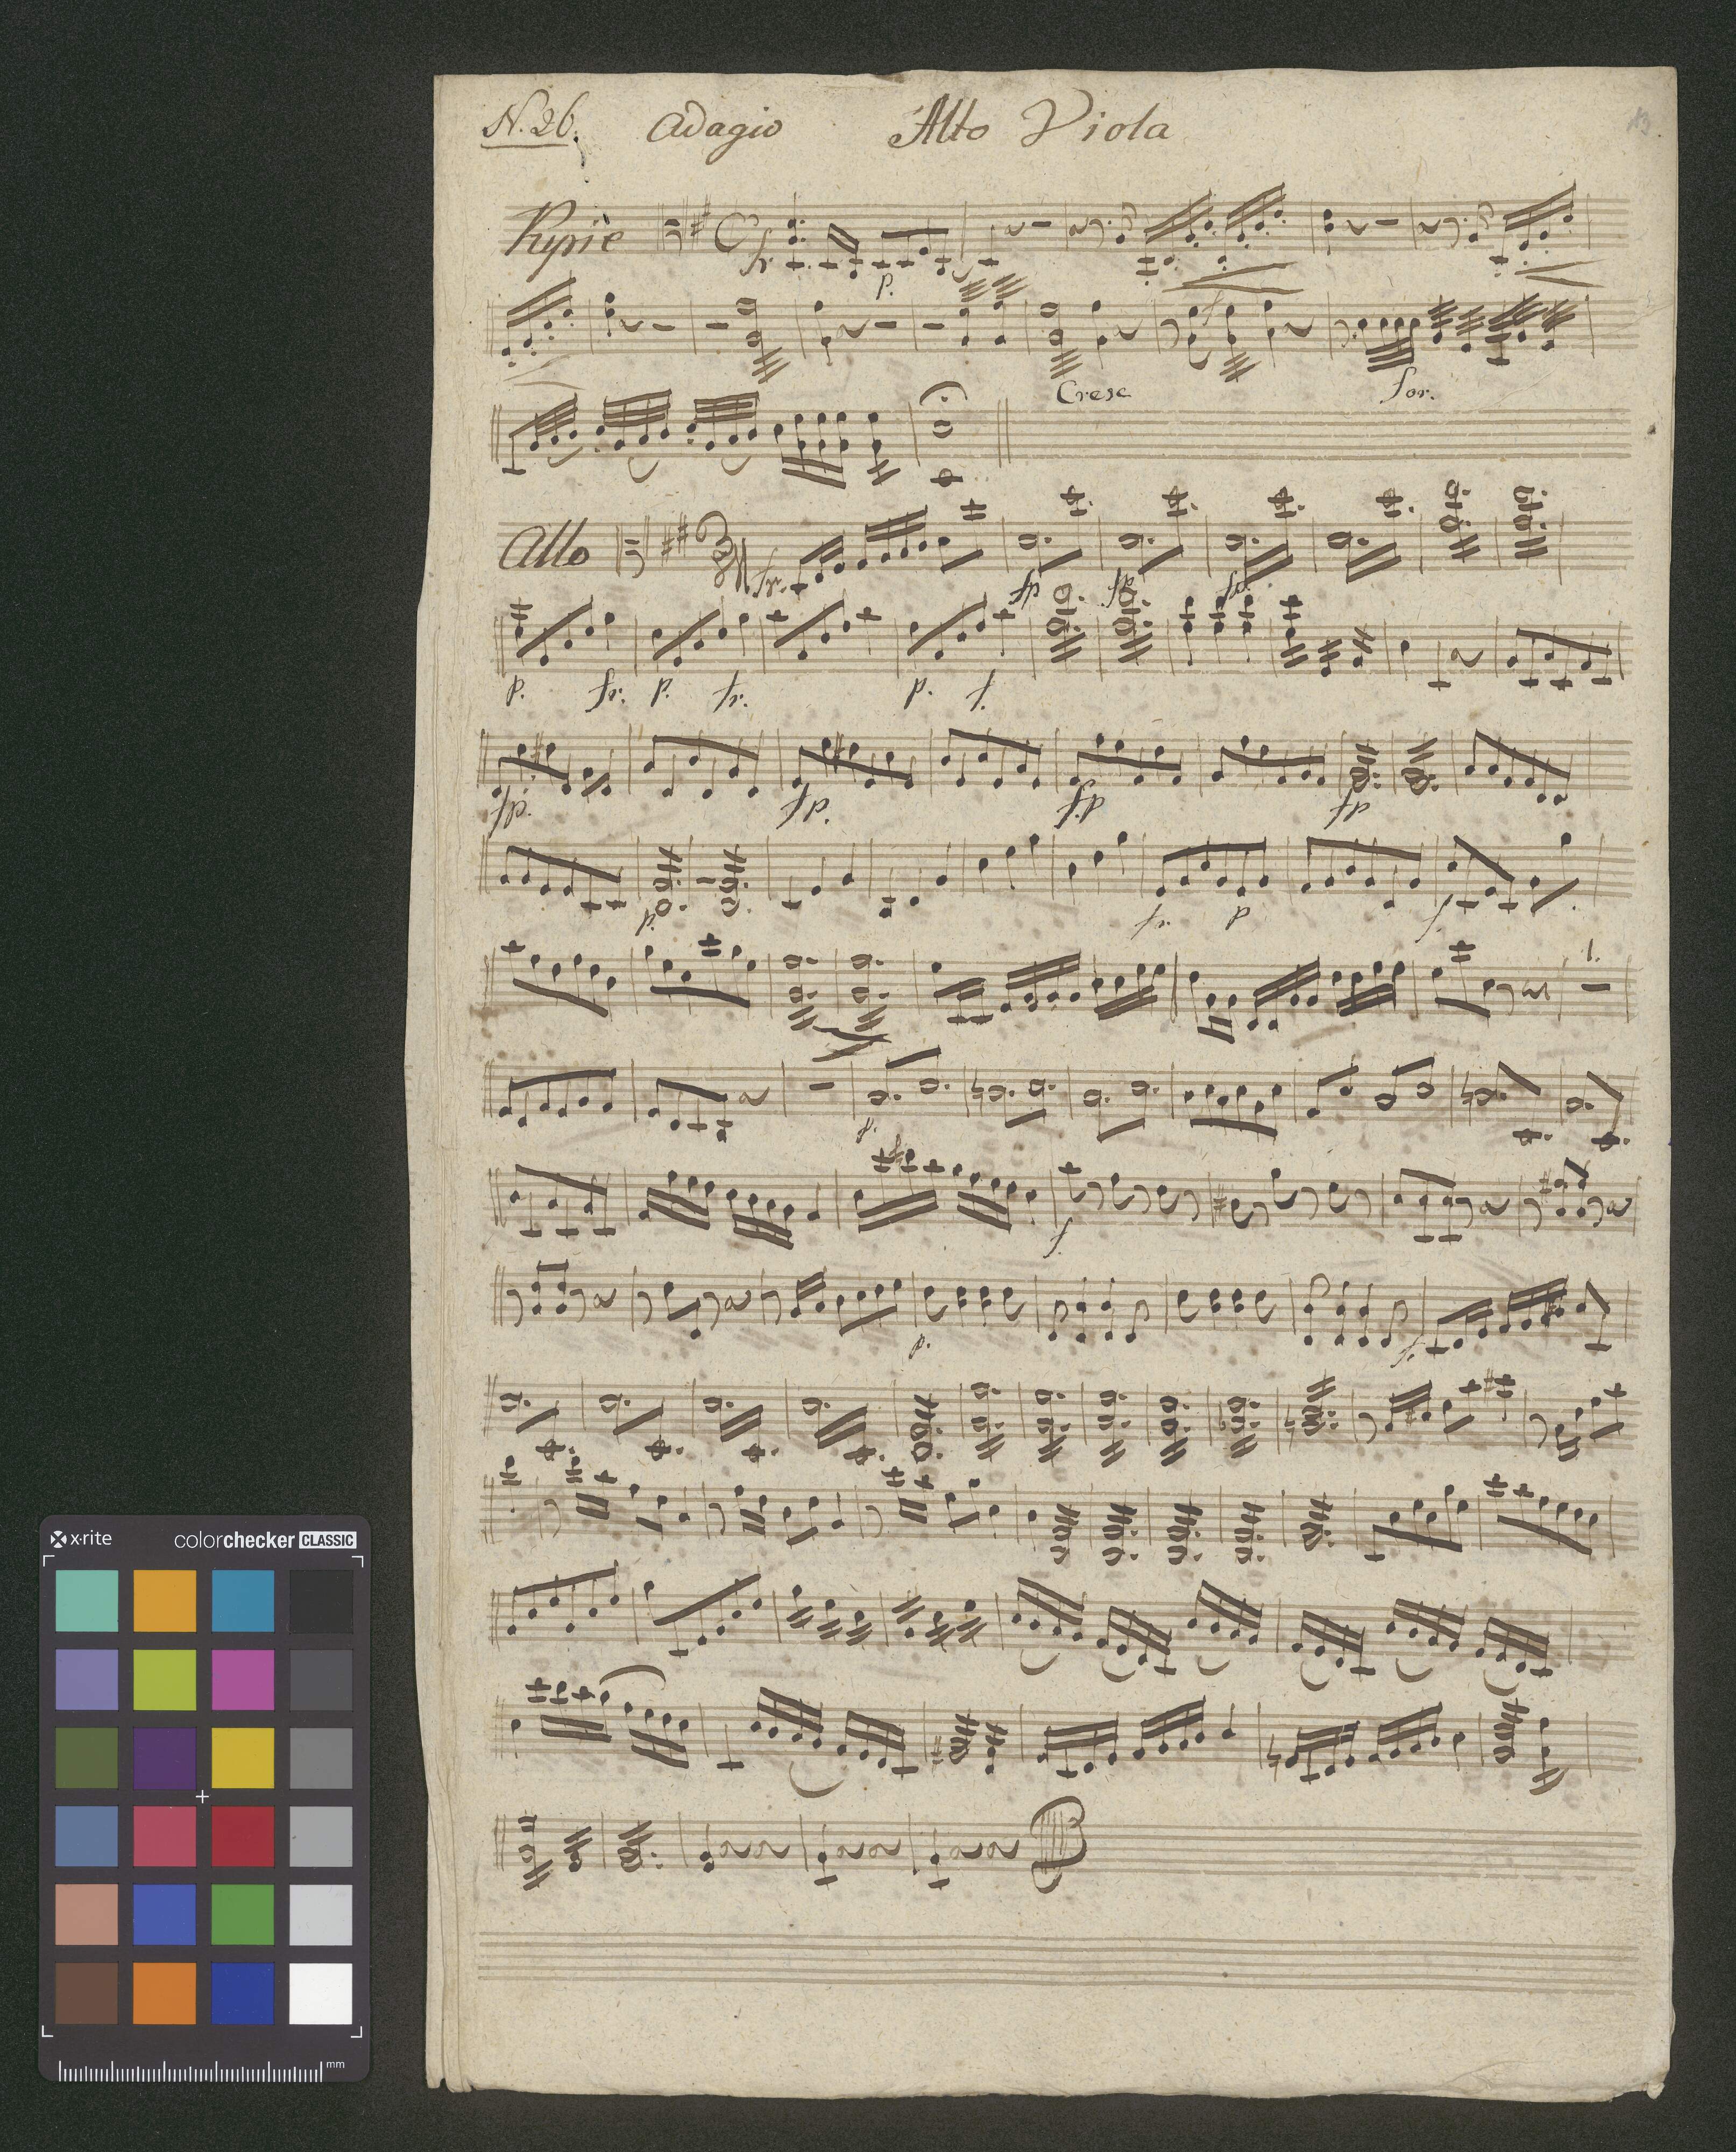 N. 26. Adagio Alto Viola
Kyriè fr. p.
f
Cresc for.
Allo 3/4 fr. fp fp fp
p. fr. p. fr. p. f.
fp. fp. fp fp
p. fr. p f.
1.
p.
f.
p. f.
x-rite colorchecker CLASSIC
mm